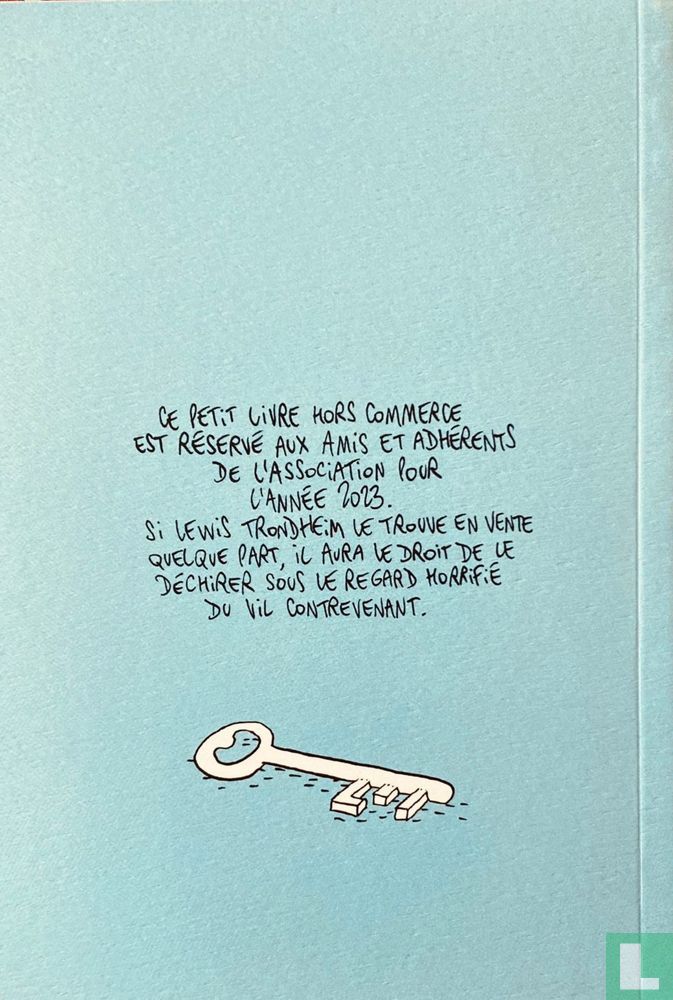 CE PETIT LIVRE HORS COMMERCE
EST RÉSERVÉ AUX AMIS ET ADHÉRENTS
DE L'ASSOCIATION POUR
L'ANNÉE 2023.
SI LEWIS TRONDHEIM LE TROUVE EN VENTE
QUELQUE PART, IL AURA LE DROIT DE LE
DÉCHIRER SOUS LE REGARD HORRIFIÉ
DU VIL CONTREVENANT.
L